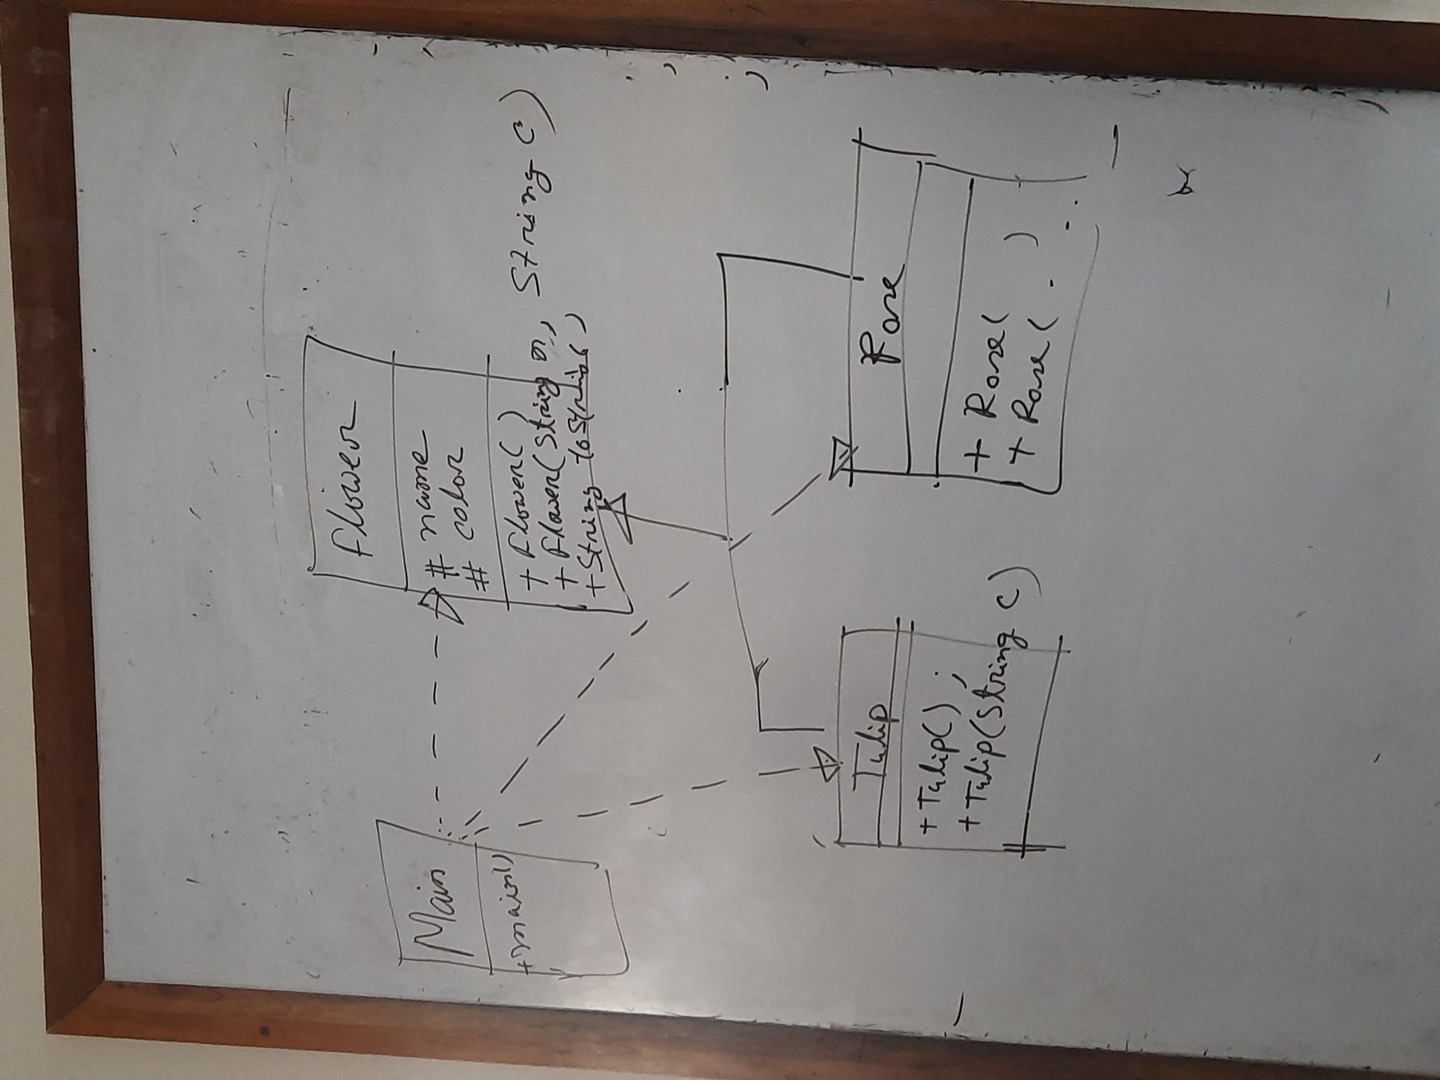 Flower
# name
# color
+ Flower( )
+ Flower(String n, String c)
+ String toString( )
Main
+main()
Tulip
+ Tulip( ) ;
+ Tulip(String c)
Rose
+ Rose( )
+ Rose( . . .